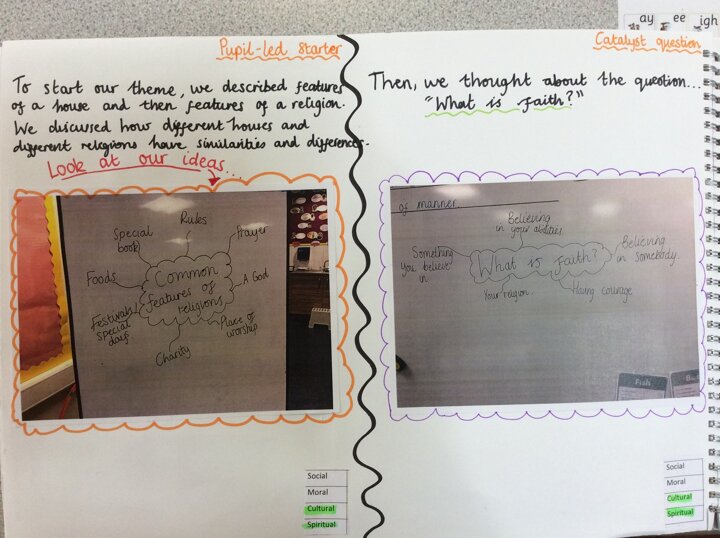 ay ee igh
Pupil-led Starter
To start our theme, we described features
of a house and then features of a religion.
We discussed how different houses and
different religions have similarities and differences.
Look at our ideas...
Rules
Special
book
Prayer
Foods
Common
features of
religions
A God
Festivals/
special
days
Place of
worship
Charity
Social
Moral
Cultural
Spiritual
Catalyst question
Then, we thought about the question...
"What is faith?"
of manner
Believing
in your abilities
Something
you believe
in
What is faith?
Believing
in somebody
Your religion
Having courage
Fish
Social
Moral
Cultural
Spiritual